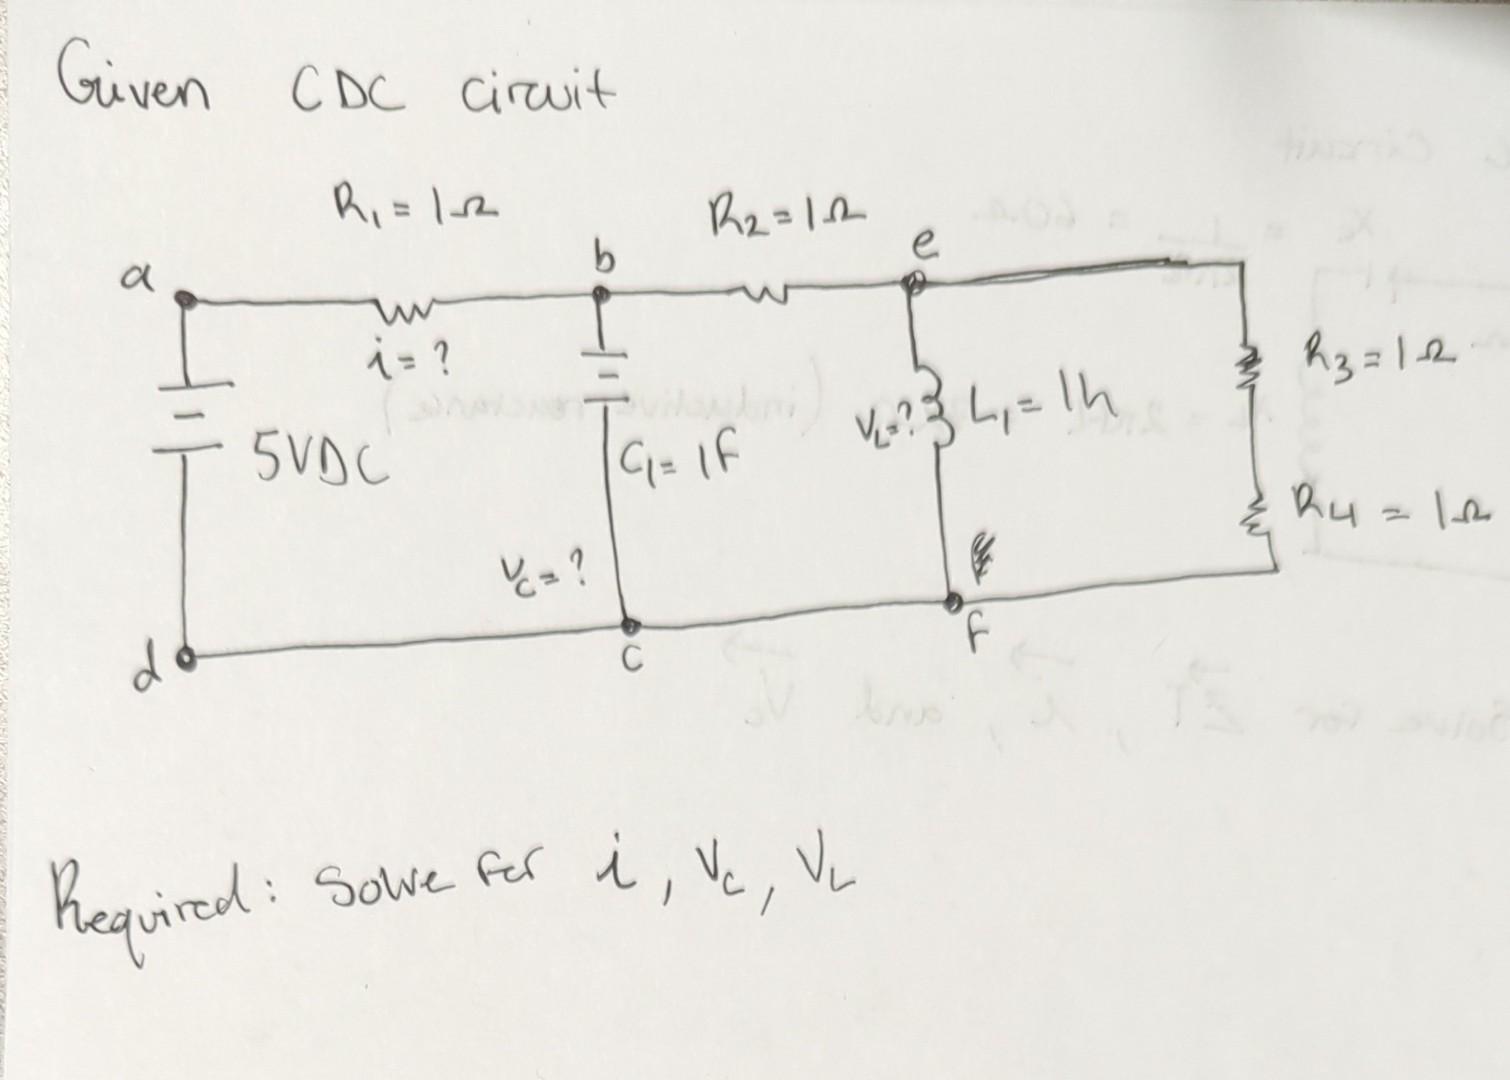 Given CDC circuit
R₁ = 1Ω
R₂ = 1Ω
a
b
e
i = ?
R₃ = 1Ω
5VDC
C₁ = 1F
V_L = ?
L₁ = 1h
R4 = 1Ω
V_C = ?
d
c
f
Required: Solve for i, V_C, V_L